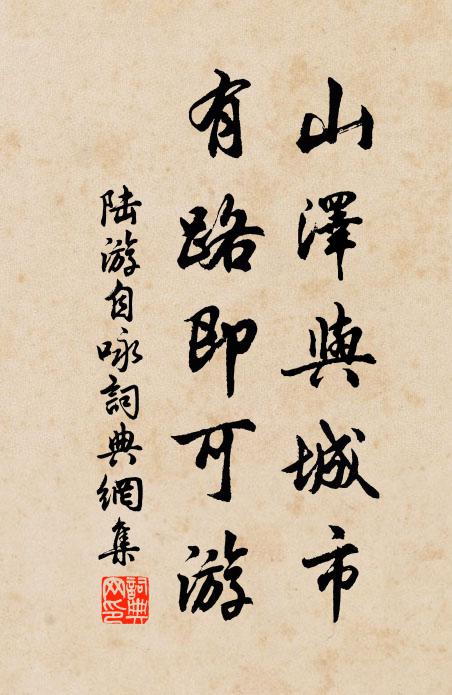 山澤與城市
有路即可游
陆游自咏詞典網集
詞典
网印